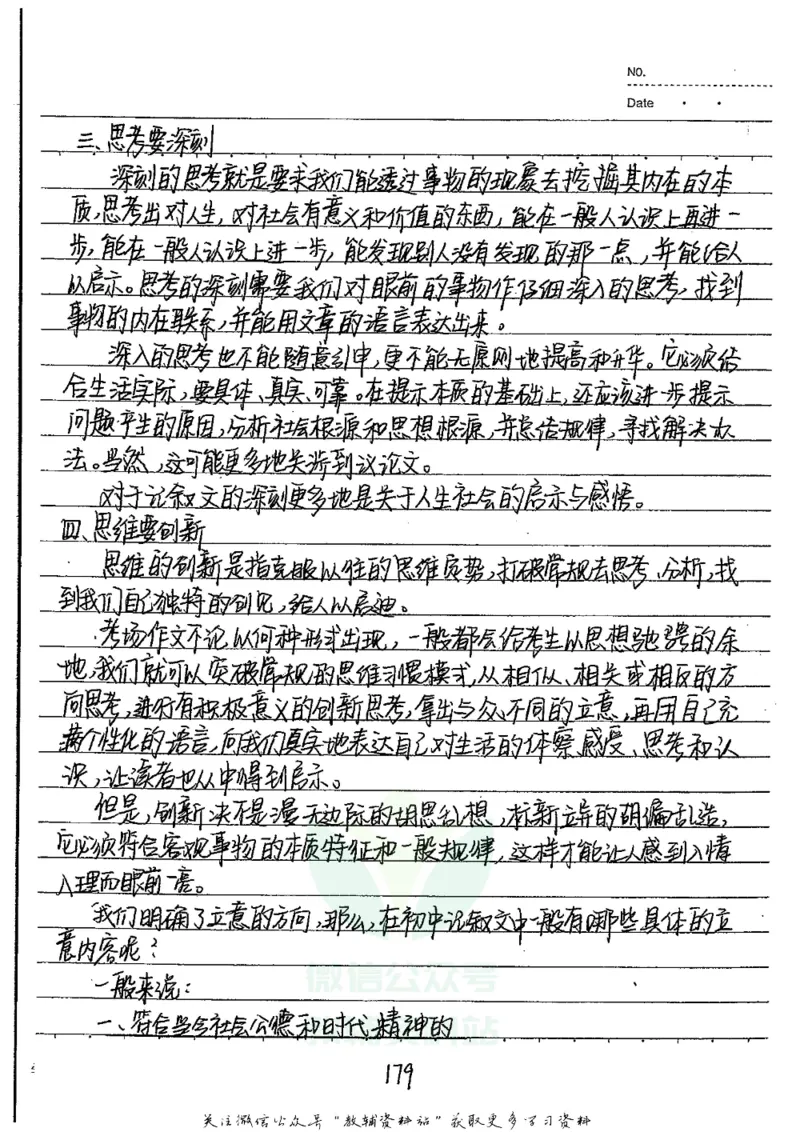 NO.
Date
三、思考要深刻
深刻的思考就是要求我们能透过事物的现象去挖掘其内在的本
质,思考出对人生,对社会有意义和价值的东西,能在一般人认识上再进一
步,能在一般人认识上进一步,能发现别人没有发现的那一点,并能给人
以启示。思考的深刻需要我们对眼前的事物作仔细深入的思考,找到
事物的内在联系,并能用文章的语言表达出来。
深入的思考也不能随意引申,更不能无原则地提高和升华。它必须结
合生活实际,要具体、真实、可靠。在提示本质的基础上,还应该进一步提示
问题产生的原因,分析社会根源和思想根源,并总结规律,寻找解决办
法。当然,这可能更多地关涉到议论文。
对于记叙文的深刻更多地是关于人生社会的启示与感悟。
四、思维要创新
思维的创新是指克服以往的思维定势,打破常规去思考、分析,找
到我们自己独特的创见,给人以启迪。
考场作文不论以何种形式出现,一般都会给考生以思想驰骋的余
地,我们就可以突破常规的思维习惯模式,从相似、相关或相反的方
向思考,进行有积极意义的创新思考,拿出与众不同的立意,再用自己充
满个性化的语言,向我们真实地表达自己对生活的体察、感受、思考和认
识,让读者也从中得到启示。
但是,创新决不是漫无边际的胡思乱想,标新立异的胡编乱造,
它必须符合客观事物的本质特征和一般规律,这样才能让人感到入情
入理而眼前一亮。
我们明确了立意的方向,那么,在初中记叙文中一般有哪些具体的立
意内容呢?
一般来说:
一、符合当今社会公德和时代精神的
微信公众号
179
关注微信公众号"教辅资料站"获取更多学习资料